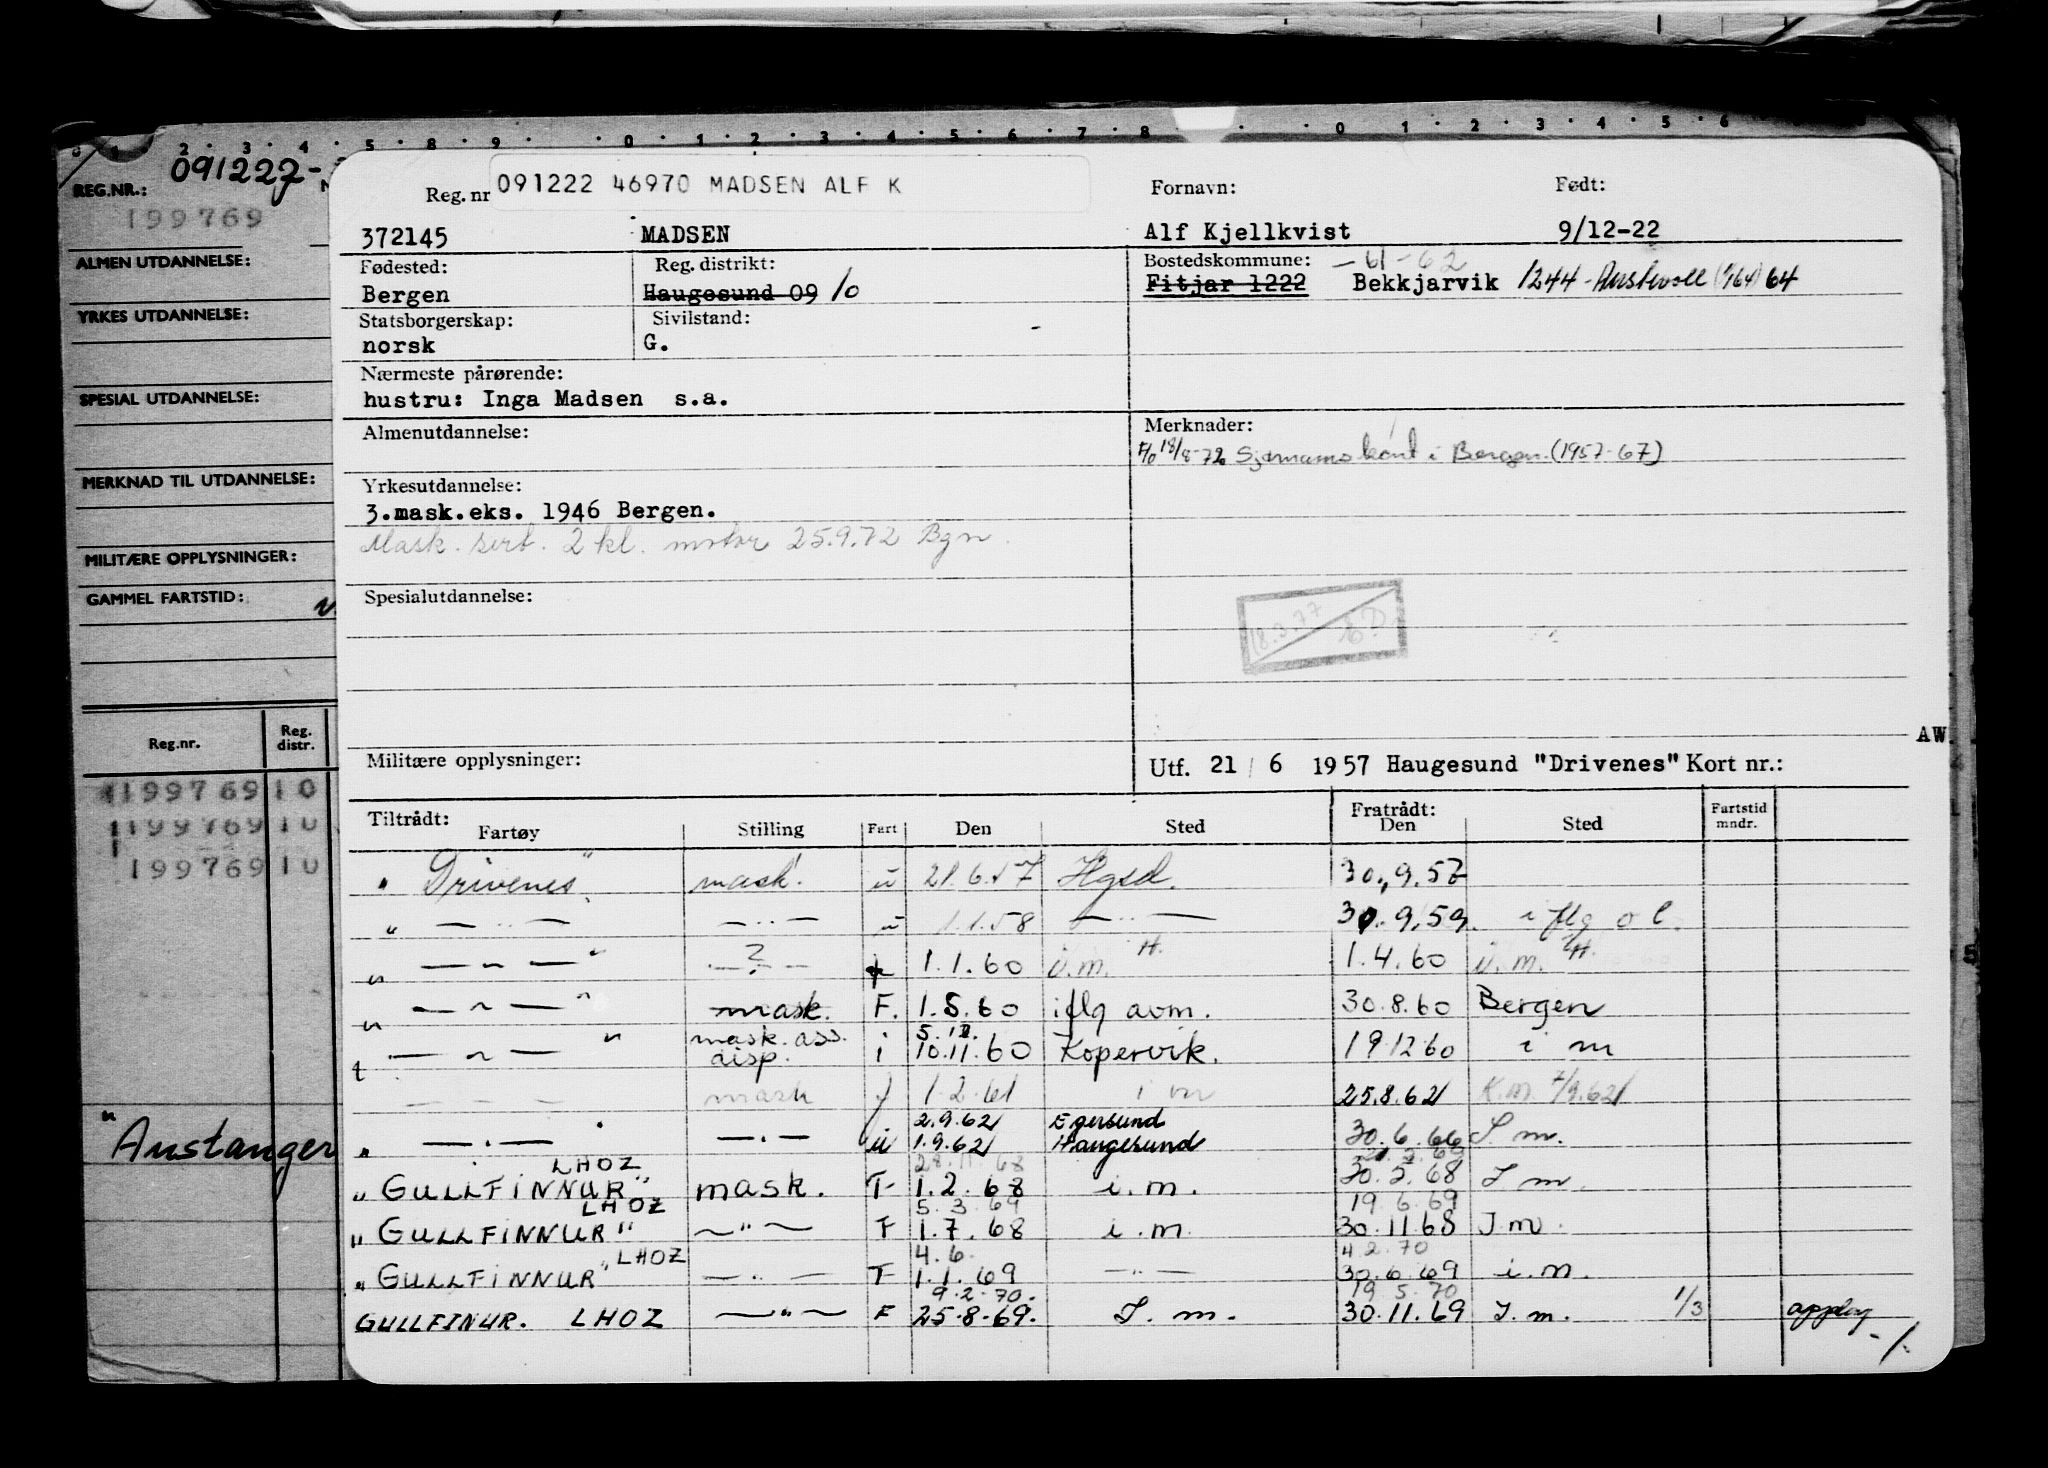 0 1 2 3 4 5 6 8 9 0 1 2 3 4 5 6 7 8 0 1 2 3 4 5 6
REG.NR.: 091222-
199769
ALMEN UTDANNELSE:
YRKES UTDANNELSE:
SPESIAL UTDANNELSE:
MERKNAD TIL UTDANNELSE:
MILITÆRE OPPLYSNINGER:
GAMMEL FARTSTID:
Reg.nr. Reg. distr.
199769 10
199769 10
199769 10
" Austanger
Reg. nr 091222 46970 MADSEN ALF K Fornavn: Født:
372145 MADSEN Alf Kjellkvist 9/12-22
Fødested: Reg. distrikt: Bostedskommune: -61-62
Bergen Haugesund 09 10 Fitjar 1222 Bekkjarvik 1244 - Austevoll (1/64) 64
Statsborgerskap: Sivilstand:
norsk G.
Nærmeste pårørende:
hustru: Inga Madsen s.a.
Almenutdannelse: Merknader:
F/o 18/8-72 Sjømannskont i Bergen (1957-67)
Yrkesutdannelse:
3.mask.eks. 1946 Bergen.
Mask. sert. 2 kl. motor 25.9.72 Bgn.
Spesialutdannelse:
18.3.77
AW
Militære opplysninger: Utf. 21/6 1957 Haugesund "Drivenes" Kort nr.:
Tiltrådt: Fratrådt: Fartstid
Fartøy Stilling Fart Den Sted Den Sted mndr.
" Drivenes" mask. u 21.6.57 Hgsd. 30.9.57
" — .. — — .. — u 1.1.58 — .. — 30.9.59. i flg o l.
" — " — " — ? — 1.1.60 i.m. H. 1.4.60 i.m. H.
" — " — " mask. F. 1.5.60 iflg avm. 30.8.60 Bergen
mask. ass. 5.12.
— " — " disp. i 10.11.60 Kopervik. 19 12 60 i m
— — — mask f 1.2.61 i m 25.8.62 K.m. 7/9.62
2.9.62 Egersund
" — . — " — . — u 1.9.62 Haugesund 30.6.66 I m.
LHOZ 28.11.68
" GULLFINNUR" mask. F 1.2.68 i.m. 30.5.68 I m.
LHOZ 5.3.69 19.6.69
" GULLFINNUR" — " — F 1.7.68 i.m. 30.11.68 I.m.
LHOZ 4.6. 4.2.70
" GULLFINNUR" — .. — F 1.1.69 — " — 30.6.69 i.m.
9.2.70. 19 5.70
GULLFINUR. LHOZ — " — F 25.8.69. I.m. 30.11.69 I.m. 1/3 opplag
-/.